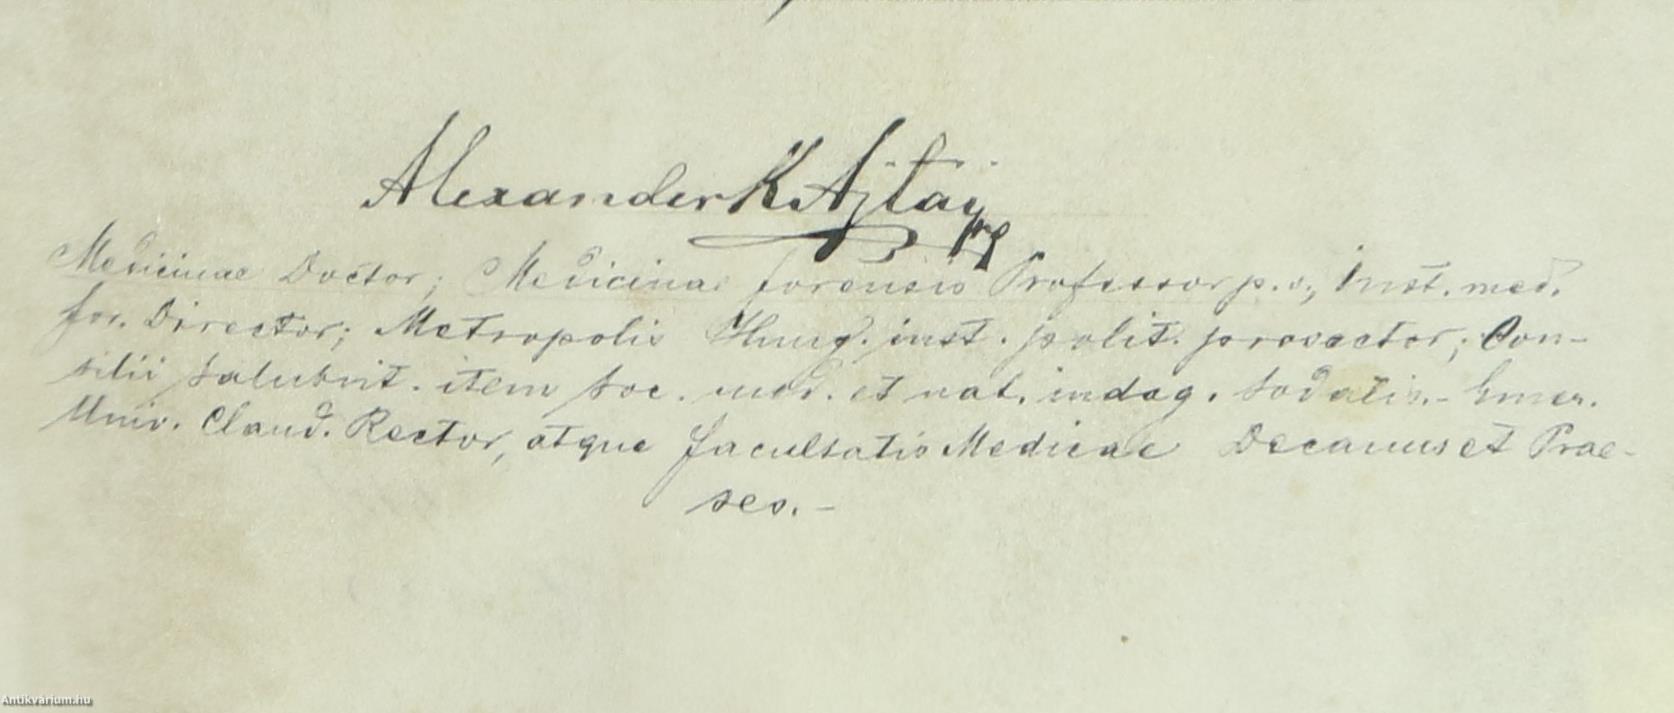 Alexander K Ajtay
Medicinae Doctor; Medicinae forensis Professor p. o., Inst. med.
for. Director; Metropolis Hung. inst. polit. prosector; Con-
silii salubrit. item soc. med. et nat. indag. sodalis.- Emer.
Univ. Claud. Rector, atque facultatis Medicae Decanus et Prae-
ses.-
Antikvárium.hu